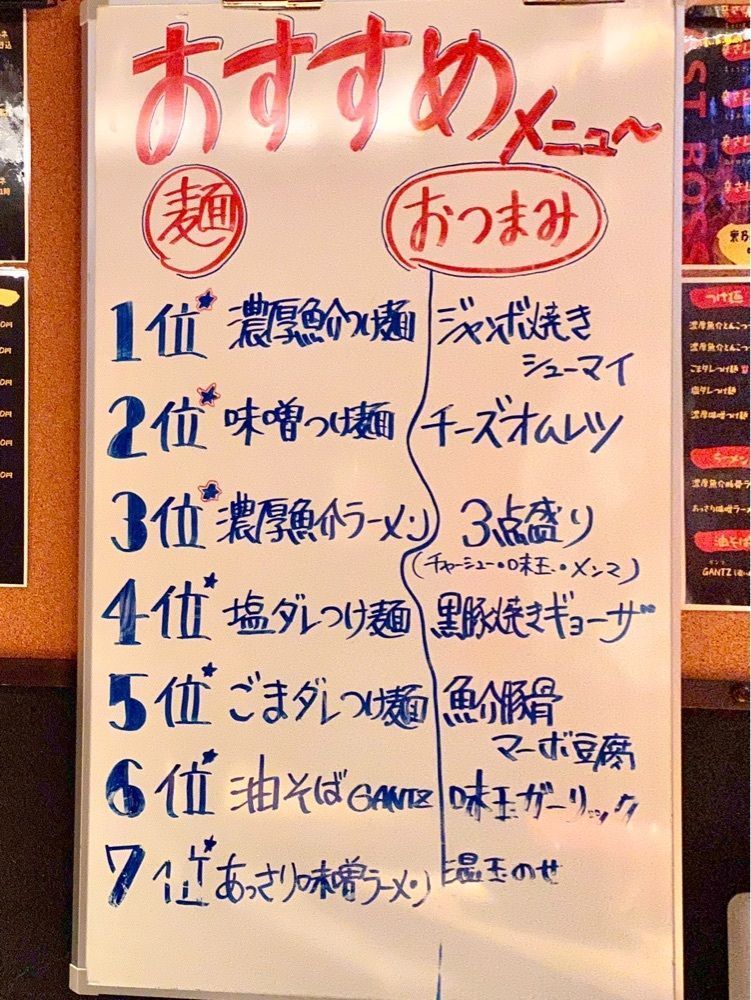 おすすめ
メニュ〜
麺
おつまみ
1位 濃厚魚介つけ麺
ジャンボ焼き
シューマイ
2位 味噌つけ麺
チーズオムレツ
3位 濃厚魚介ラーメン
3点盛り
(チャーシュー・味玉・メンマ)
4位 塩ダレつけ麺
黒豚焼きギョーザ
5位 ごまダレつけ麺
魚介豚骨
マーボ豆腐
6位 油そばGANTZ
味玉ガーリック
7位 あっさり味噌ラーメン
温玉のせ
つけ麺
濃厚魚介とんこつ
ごまダレつけ麺
塩ダレつけ麺
濃厚味噌つけ
ラーメン
濃厚魚介豚骨ラ
あっさり味噌ラー
油そば
GANTZ